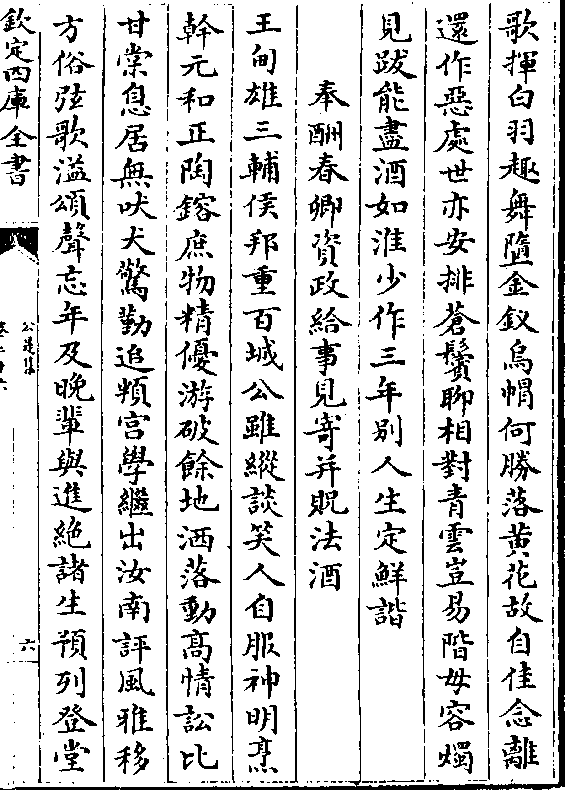 歌揮白羽趣舞墮金釵烏帽何勝落黄花故自佳念離
還作惡處世亦安排蒼鬢聊相對青雲豈易階毋容燭
見跋能盡酒如淮少作三年别人生定鮮諧
奉酬春卿資政給事見寄并貺法酒
王甸雄三輔侯邦重百城公雖縱談笑人自服神明烹
幹元和正陶鎔庶物精優游破餘地洒落動髙情訟比
甘棠息居無吠犬驚勤追頖宮學繼出汝南評風雅移
方俗弦歌溢頌聲忘年及晩輩與進絶諸生預列登堂
欽定四庫全書
公是集
六